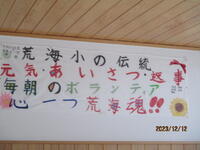 荒海小の伝統
元気・あいさつ・返事
毎朝のボランティア
心一つ荒海魂!!
2023/12/12